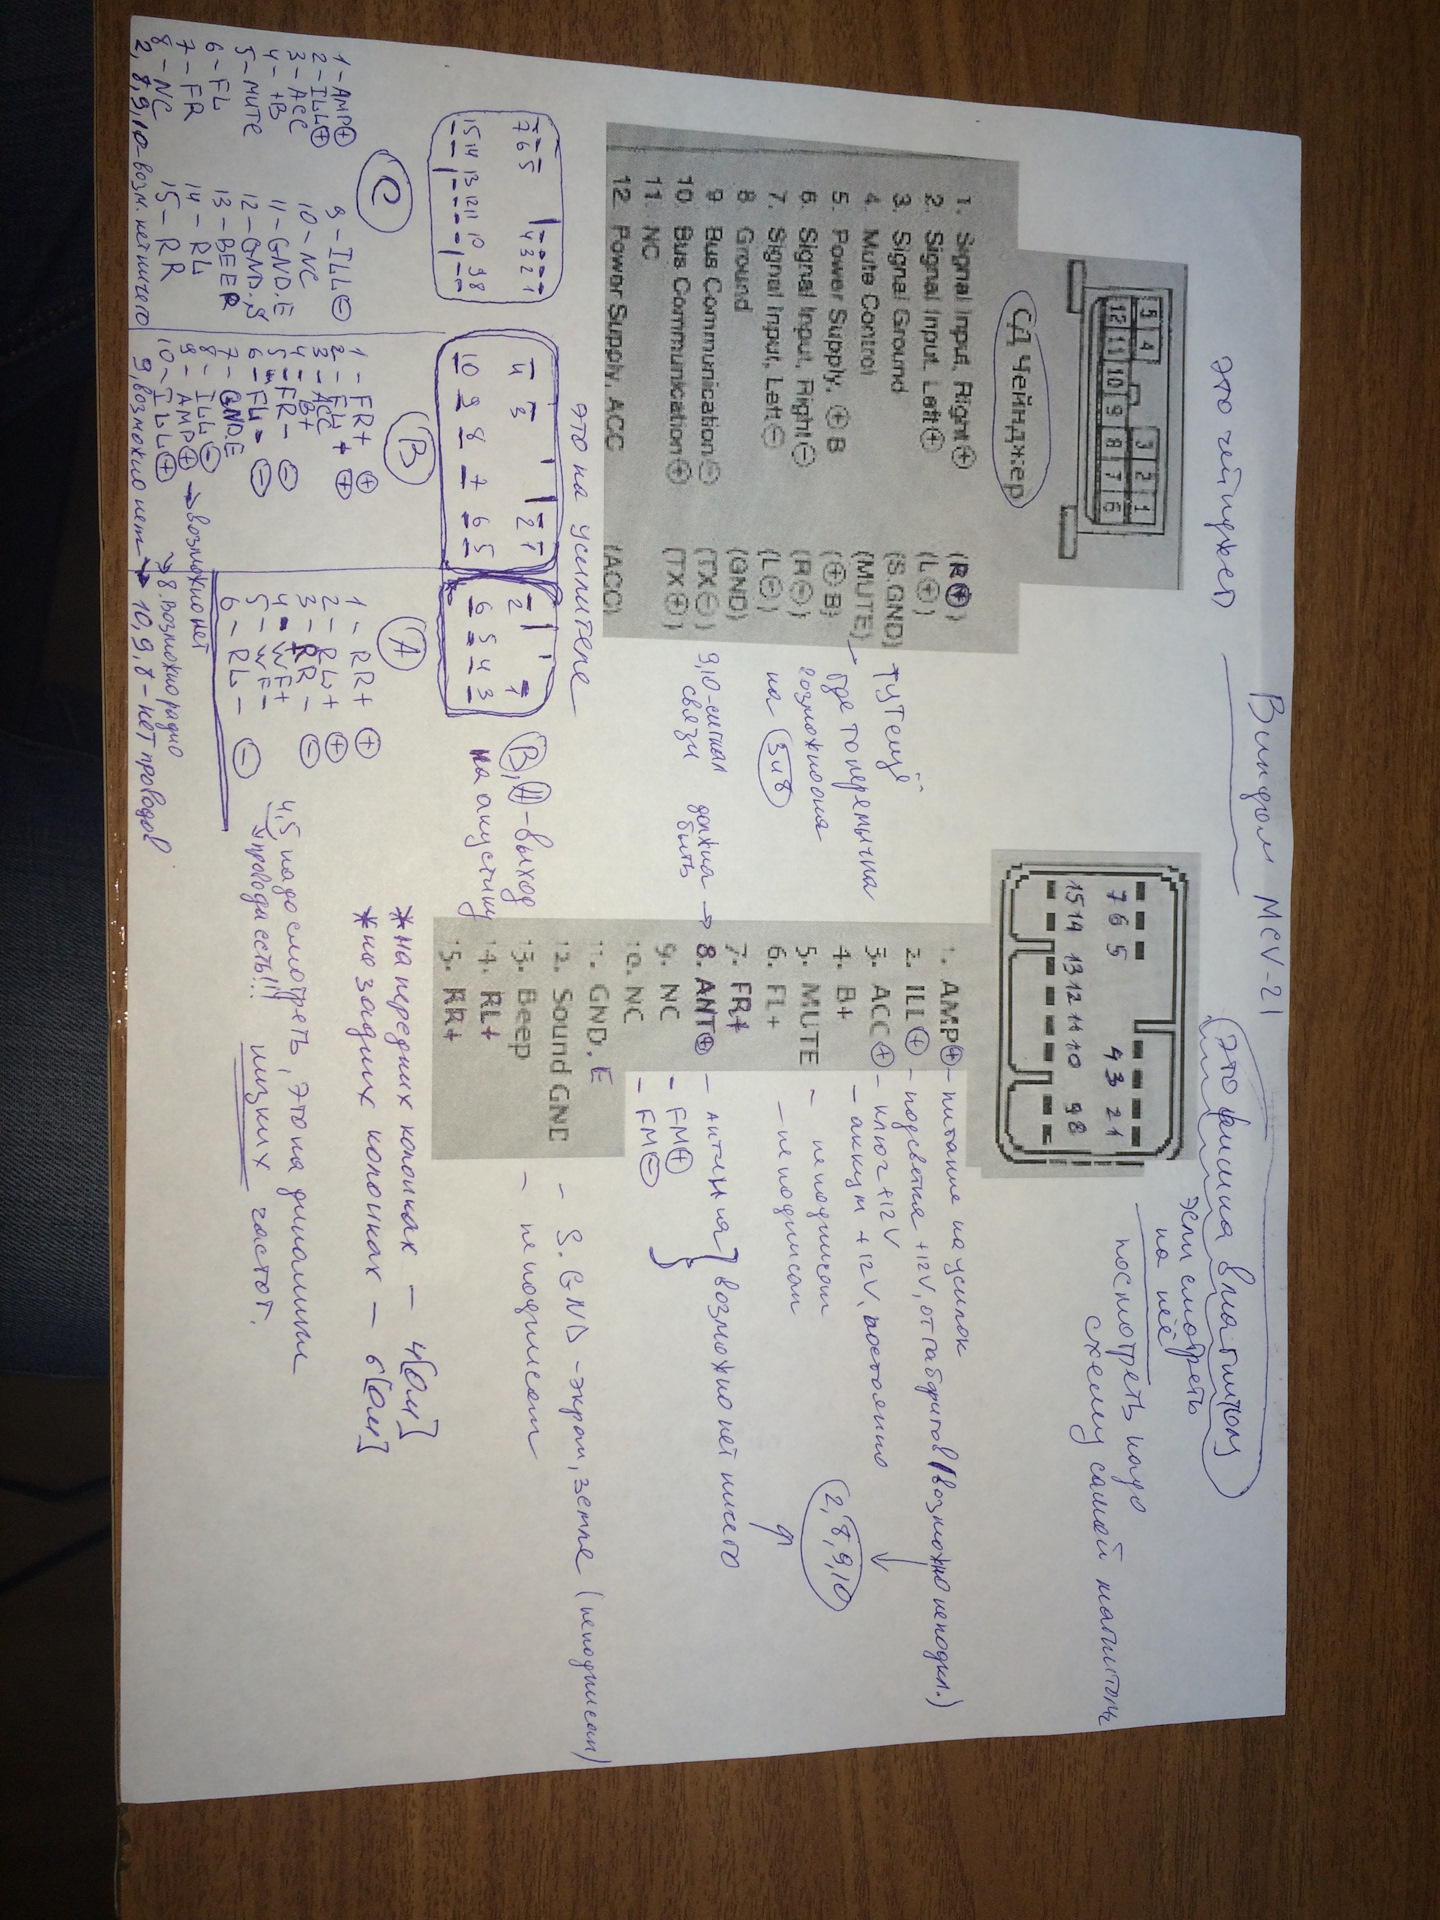 Виндом MCV-21
это чейнджер
5 4 3 2 1
12 11 10 9 8 7 6
СД Чейнджер
1. Signal Input, Right ⊕ (R⊕)
2. Signal Input, Left ⊕ (L⊕)
3. Signal Ground (S.GND)
4. Mute Control (MUTE)
5. Power Supply, ⊕B (⊕B)
6. Signal Input, Right ⊖ (R⊖)
7. Signal Input, Left ⊖ (L⊖)
8 Ground (GND)
9 Bus Communication ⊖ (TX⊖)
10. Bus Communication ⊕ (TX⊕)
11. NC
12. Power Supply, ACC (ACC)
тут ещё
где то перемычка
возможно она
на 3 и 8
9,10-сигнал
связи
это фишка в магнитолу
если смотреть
на неё
посмотреть надо
схему самой магнитолы
7 6 5 4 3 2 1
15 14 13 12 11 10 9 8
1. AMP⊕ – питание на усилок
2. ILL⊕ – подсветка +12V, от габаритов (возможно неподкл.)
3. ACC⊕ – ключ +12V
4. B+ – аккум +12V, постоянно
5. MUTE – неподписан
6. FL+ – неподписан
7. FR+
должна быть → 8. ANT⊕ – антенна
9. NC – FM⊕
10. NC – FM⊖
возможно нет ничего
2, 8, 9, 10
11. GND.E
12. Sound GND – S.GND – экран, земля (неподписан)
13. Beep – неподписан
14. RL+
15. RR+
это на усилителе
7 6 5 4 3 2 1
15 14 13 12 11 10 9 8
4 3 2 1
10 9 8 7 6 5
2 1
6 5 4 3
B, A – выход
на акустику
C
1 – AMP⊕
2 – ILL⊕
3 – ACC
4 – +B
5 – MUTE
6 – FL
7 – FR
8 – NC
9 – ILL⊖
10 – NC
11 – GND.E
12 – GND.S
13 – BEER
14 – RL
15 – RR
2, 8, 9, 10 – возм. нет ничего
B
1 – FR+ ⊕
2 – FL+ ⊕
3 – ACC
4 – B+
5 – FR – ⊖
6 – FL – ⊖
7 – GND.E
8 – ILL⊖
9 – AMP⊕ → возможно нет
10 – ILL⊕ → 8. возможно радио
9, возможно нет → 10, 9, 8 – нет проводов
A
1 – RR+ ⊕
2 – RL+ ⊕
3 – RR – ⊖
4 – WF+
5 – WF–
6 – RL – ⊖
*на передних колонках – 4[Ом]
*на задних колонках – 6[Ом]
4,5 надо смотреть, это на динамики
→ провода есть!!! низких частот.